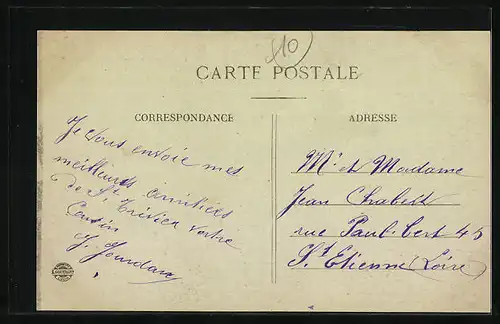 810
CARTE POSTALE
CORRESPONDANCE
ADRESSE
Je vous envoie mes
meilleures amitiées
de St Trivier votre
Cousin
J. Jourdan
Mr et Madame
Jean Chabert
rue Paul-Bert 45
St Etienne (Loire)